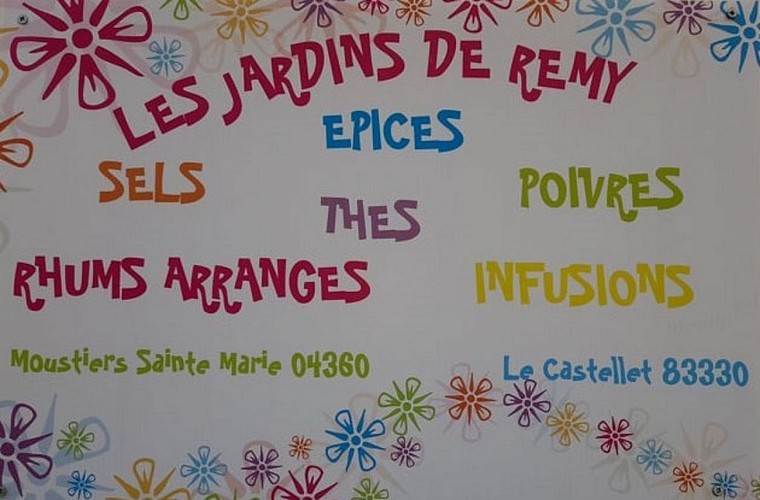 LES JARDINS DE REMY
EPICES
SELS
POIVRES
THES
RHUMS ARRANGES
INFUSIONS
Moustiers Sainte Marie 04360
Le Castellet 83330